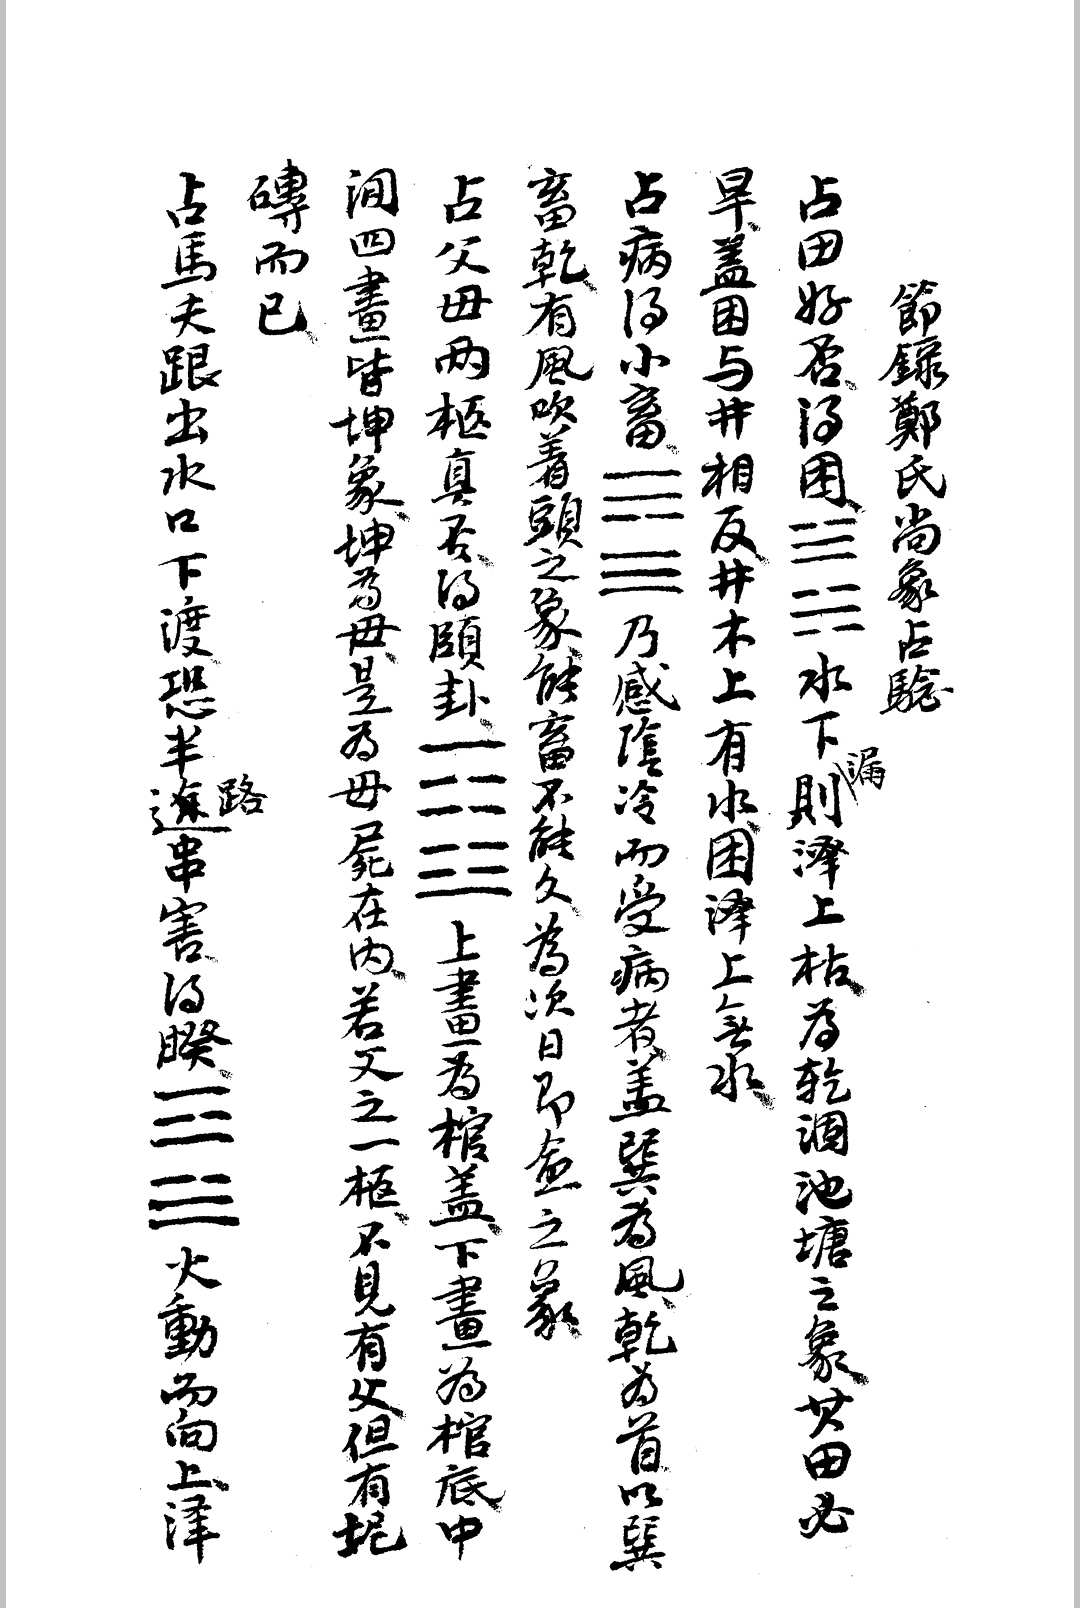 節錄鄭氏尚象占驗
占田好否得困䷮水下漏則澤上枯為乾涸池塘之象其田必
旱蓋困与井相反井木上有水困泽上無水
占病得小畜䷈乃感陰冷而受病者蓋巽為風乾為首以巽
畜乾有風吹着頭之象能畜不能久為次日即愈之象
占父毋两柩真否得頤卦䷚上畫為棺蓋下畫為棺底中
间四畫皆坤象坤為毋是為毋屍在内若父之一柩不見有父但有坭
磚而已
占馬夫跟出水口下渡恐半途路串害得睽䷥火動而向上泽